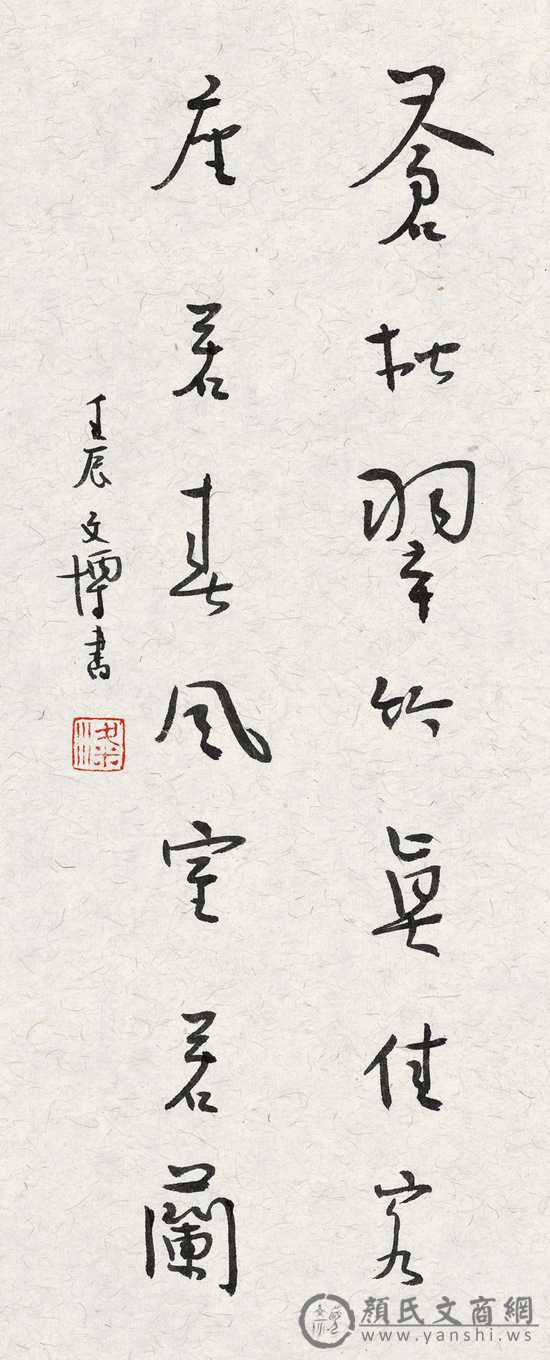 蒼松翠竹真佳客
座若春風室若蘭
壬辰文博書
顏氏文商網
www.yanshi.ws